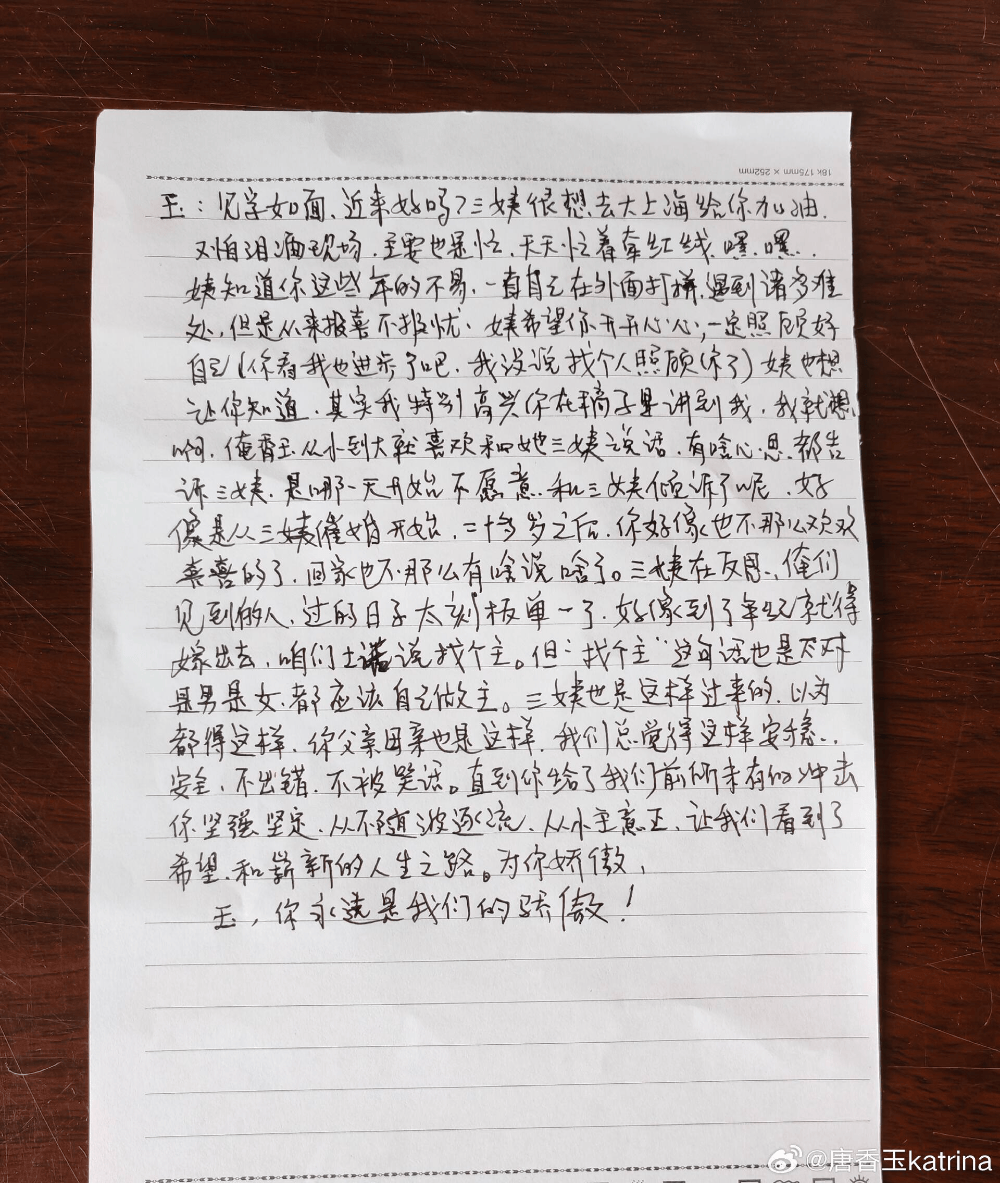 18K 175mm × 252mm
玉：见字如面，近来好吗？三姨很想去大上海给你加油，
又怕泪洒现场，主要也是忙，天天忙着牵红线，嘿嘿，
姨知道你这些年的不易，一直自己在外面打拼，遇到诸多难
处，但是从来报喜不报忧，姨希望你开开心心，一定照顾好
自己（你看我也进步了吧，我没说找个人照顾你了）姨也想
让你知道，其实我特别高兴你在稿子里讲到我，我就想
啊，俺香玉从小到大就喜欢和她三姨说话，有啥心思都告
诉三姨，是哪一天开始不愿意和三姨倾诉了呢，好
像是从三姨催婚开始，二十多岁之后，你好像也不那么欢欢
喜喜的了，回家也不那么有啥说啥了。三姨在反思，俺们
见到的人，过的日子太刻板单一了，好像到了年纪就得
嫁出去，咱们土话说找个主。但“找个主”这句话也是不对
是男是女都应该自己做主。三姨也是这样过来的，以为
都得这样，你父亲母亲也是这样，我们总觉得这样安稳，
安全，不出错，不被笑话。直到你给了我们前所未有的冲击
你坚强坚定，从不随波逐流，从小主意正，让我们看到了
希望，和崭新的人生之路。为你骄傲，
玉，你永远是我们的骄傲！
@唐香玉katrina